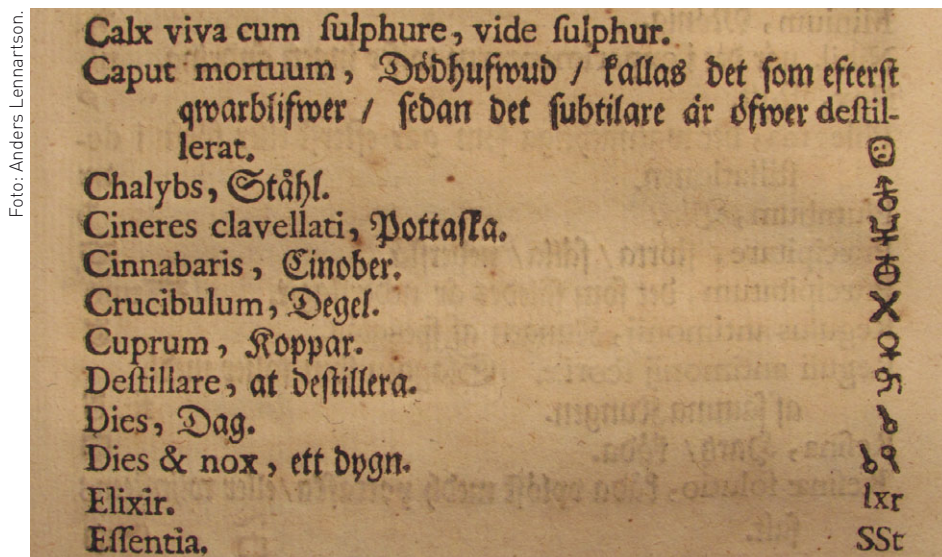 Foto: Anders Lennartson.
Calx viva cum ſulphure, vide ſulphur.
Caput mortuum, Dödhufwud / kallas det ſom efterſt
qwarblifwer / ſedan det ſubtilare är öfwer deſtil-
lerat.
Chalybs, Ståhl.
Cineres clavellati, Pottaſka.
Cinnabaris, Cinober.
Crucibulum, Degel.
Cuprum, Koppar.
Deſtillare, at deſtillera.
Dies, Dag.
Dies & nox, ett dygn.
Elixir. lxr
Eſſentia. SSt